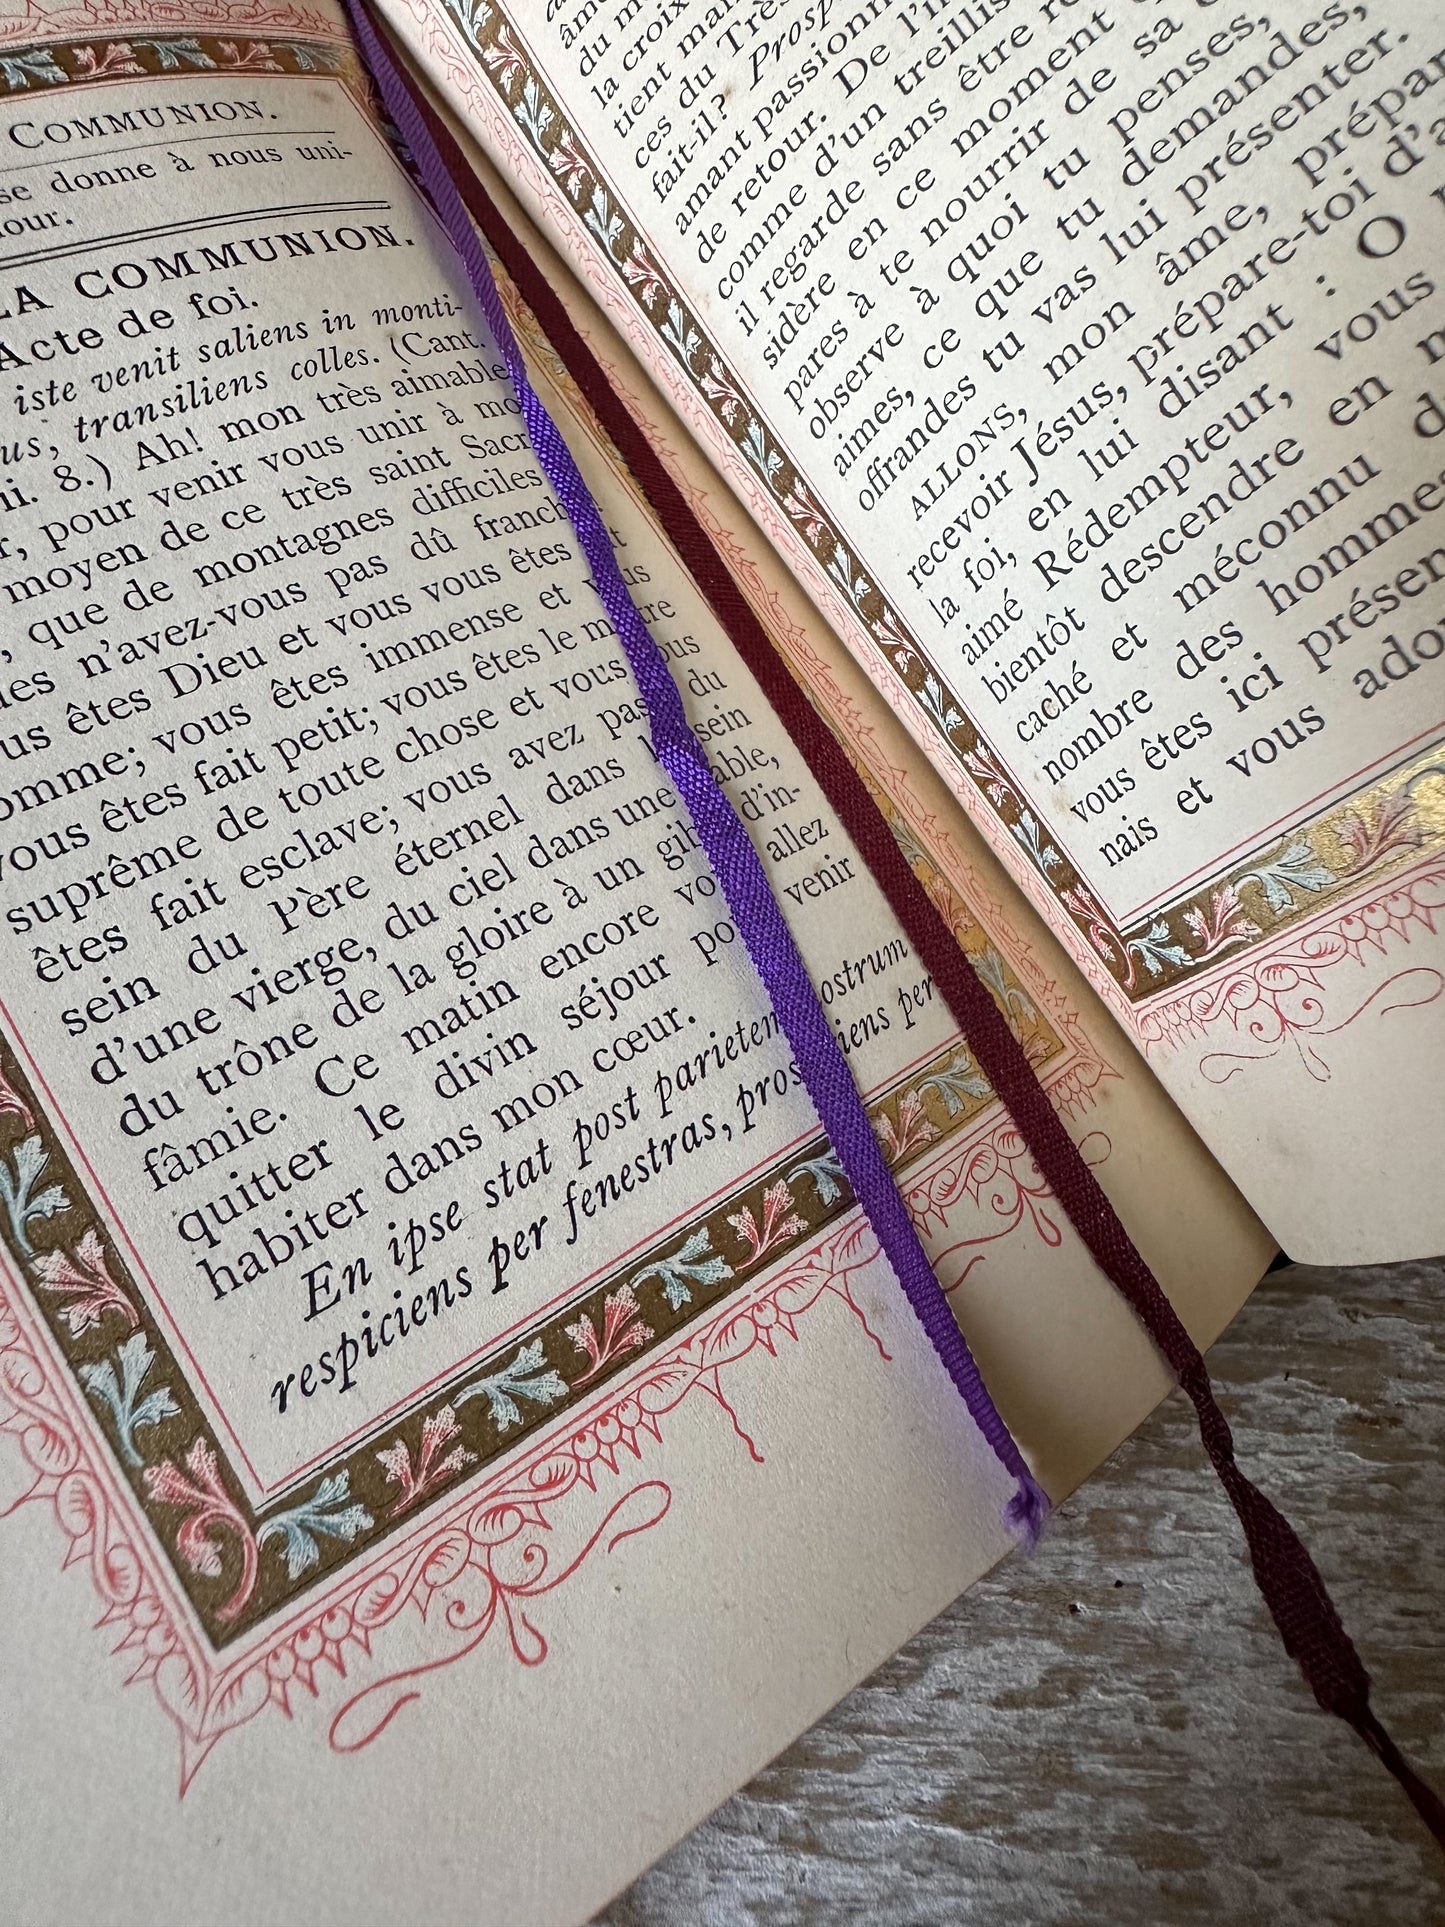 COMMUNION.
se donne à nous uni-
our.
LA COMMUNION.
Acte de foi.
iste venit saliens in monti-
us, transiliens colles. (Cant.
ii. 8.) Ah! mon très aimable
r, pour venir vous unir à mo
moyen de ce très saint Sacr
, que de montagnes difficiles
les n'avez-vous pas dû franch
us êtes Dieu et vous vous êtes
omme; vous êtes immense et vous
vous êtes fait petit; vous êtes le maître
suprême de toute chose et vous vous
êtes fait esclave; vous avez pas du
sein du Père éternel dans le sein
d'une vierge, du ciel dans une able,
du trône de la gloire à un gib d'in-
fâmie. Ce matin encore vo allez
quitter le divin séjour po venir
habiter dans mon cœur.
En ipse stat post parietem ostrum
respiciens per fenestras, pros iens per
âme
du m
la croix
tient mai
ces du Très
fait-il? Prosp
amant passionn
de retour. De l'i
comme d'un treillis
il regarde sans être
sidère en ce moment
pares à te nourrir de sa
observe à quoi tu penses,
aimes, ce que tu demandes,
offrandes tu vas lui présenter.
ALLONS, mon âme, prépar
recevoir Jésus, prépare-toi d'a
la foi, en lui disant : O
aimé Rédempteur, vous
bientôt descendre en
caché et méconnu d
nombre des hommes
vous êtes ici présen
nais et vous ado